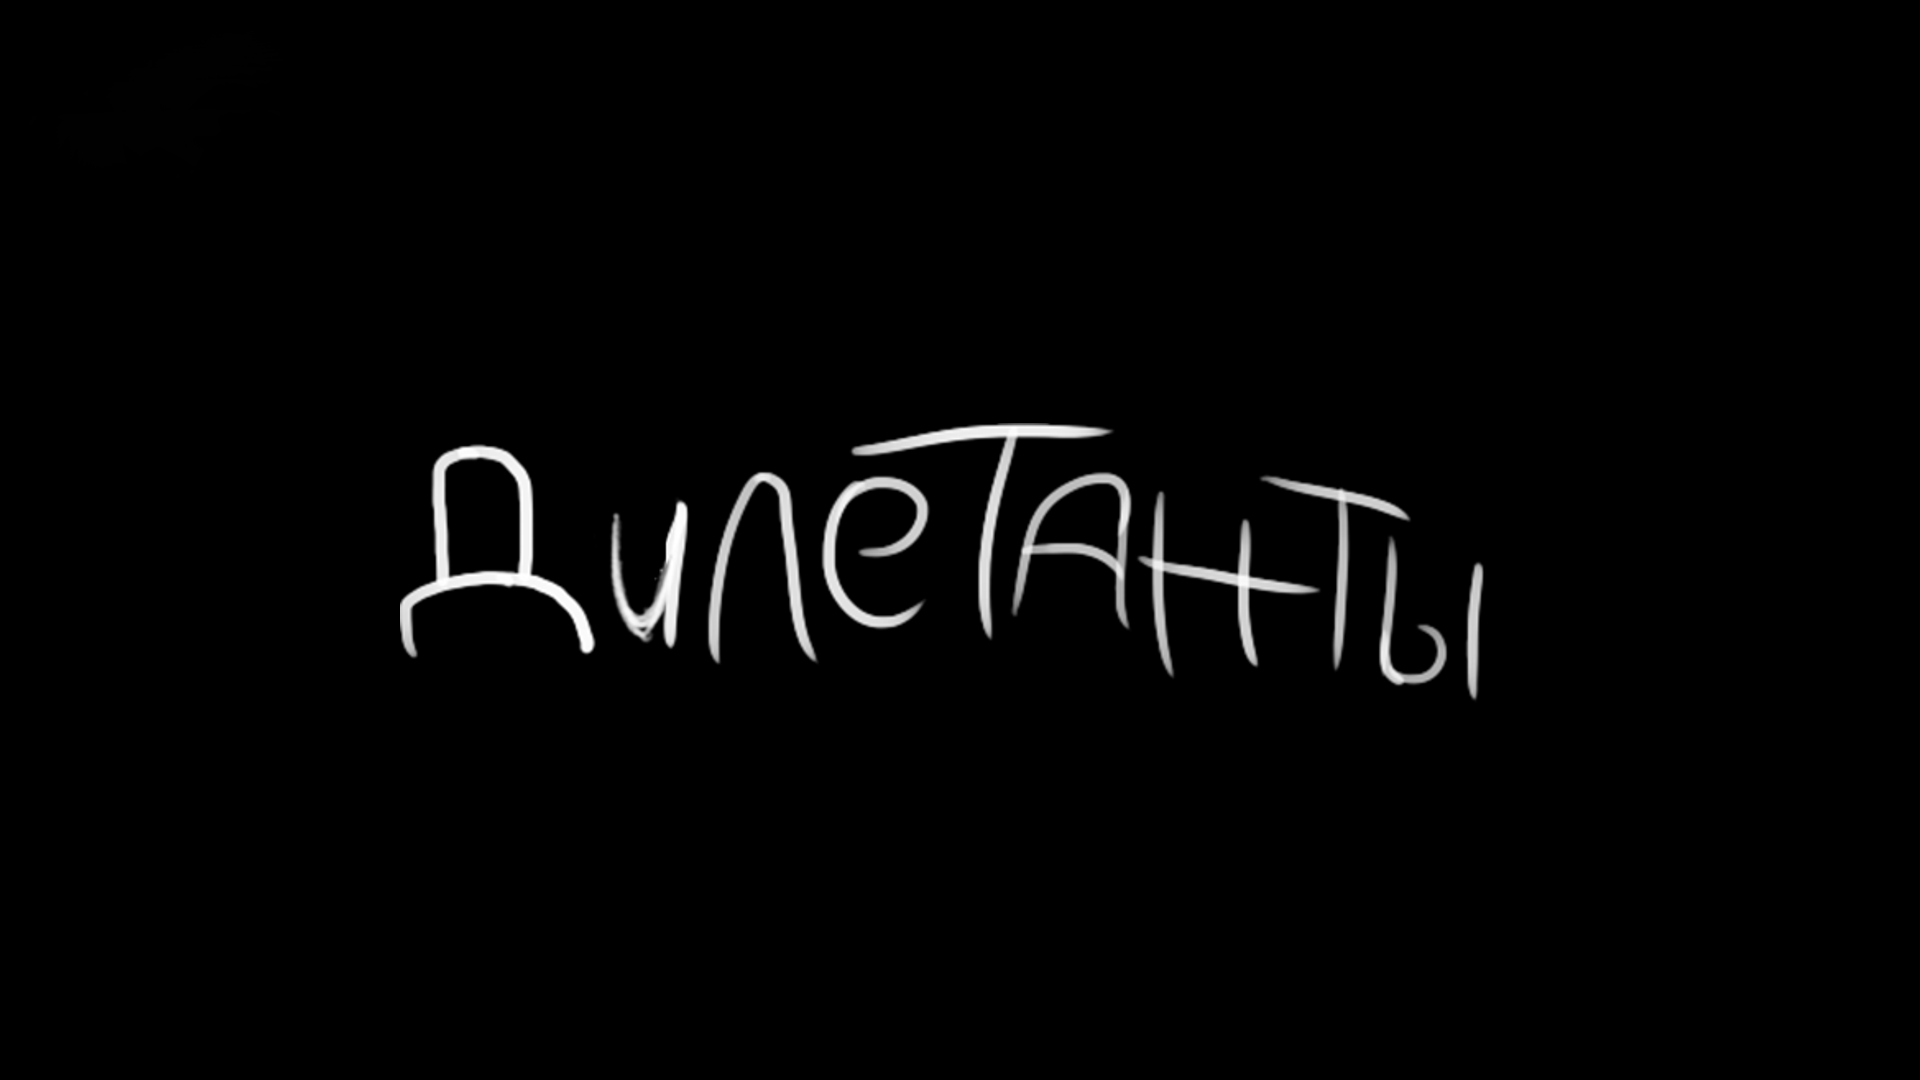 Дилетанты